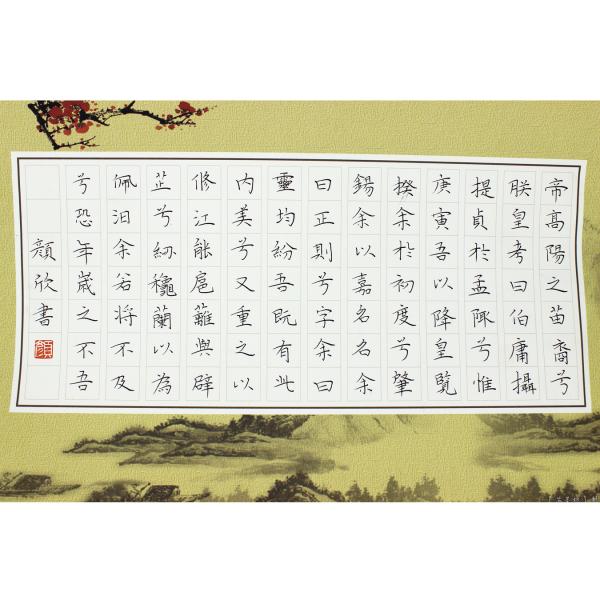 帝高陽之苗裔兮
朕皇考曰伯庸攝
提貞於孟陬兮惟
庚寅吾以降皇覽
揆余於初度兮肇
錫余以嘉名名余
曰正則兮字余曰
靈均紛吾既有此
內美兮又重之以
修江能扈蘺與辟
芷兮紉穐蘭以為
佩汩余若將不及
兮恐年歲之不吾
顏欣書
顏